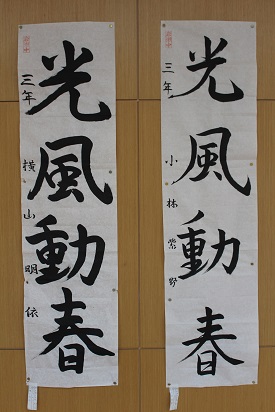 光風動春
三年 小林紫野
光風動春
三年 横山明依